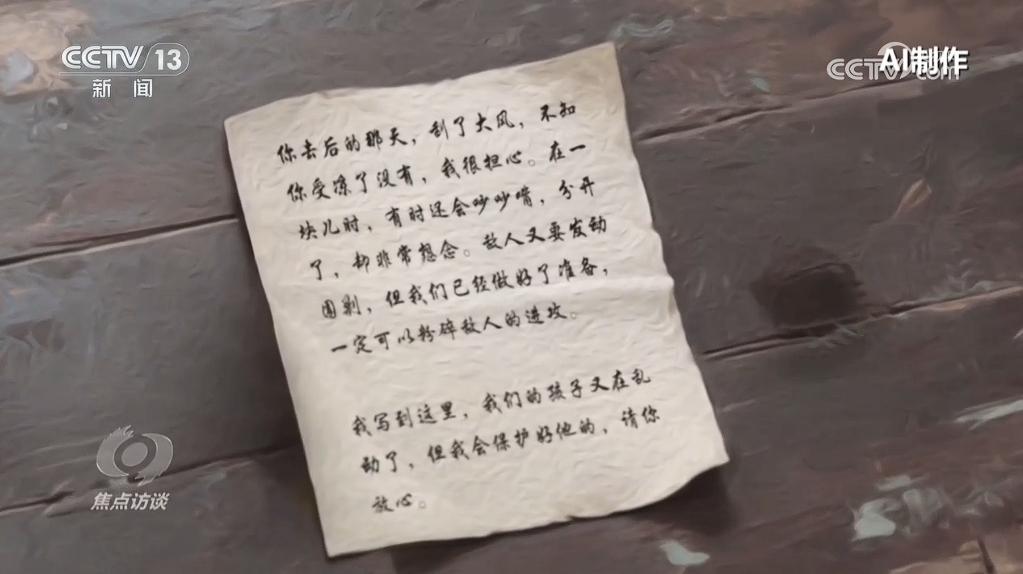 CCTV 13
新闻
AI制作
CCTV.com
你去后的那天，刮了大风，不知
你受冻了没有，我很担心。在一
块儿时，有时还会吵吵嘴，分开
了，却非常想念。敌人又要发动
围剿，但我们已经做好了准备，
一定可以粉碎敌人的进攻。
我写到这里，我们的孩子又在乱
动了，但我会保护好他的，请你
放心。
焦点访谈